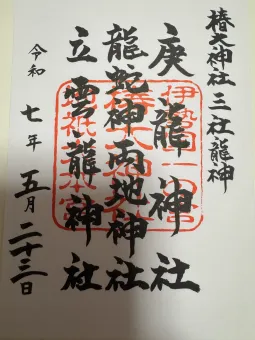 椿大神社 三社龍神
庚龍神社
龍蛇神両地神社
立雲龍神社
令和七年五月二十三日
伊勢国一宮
椿大神社
地祇大本宮